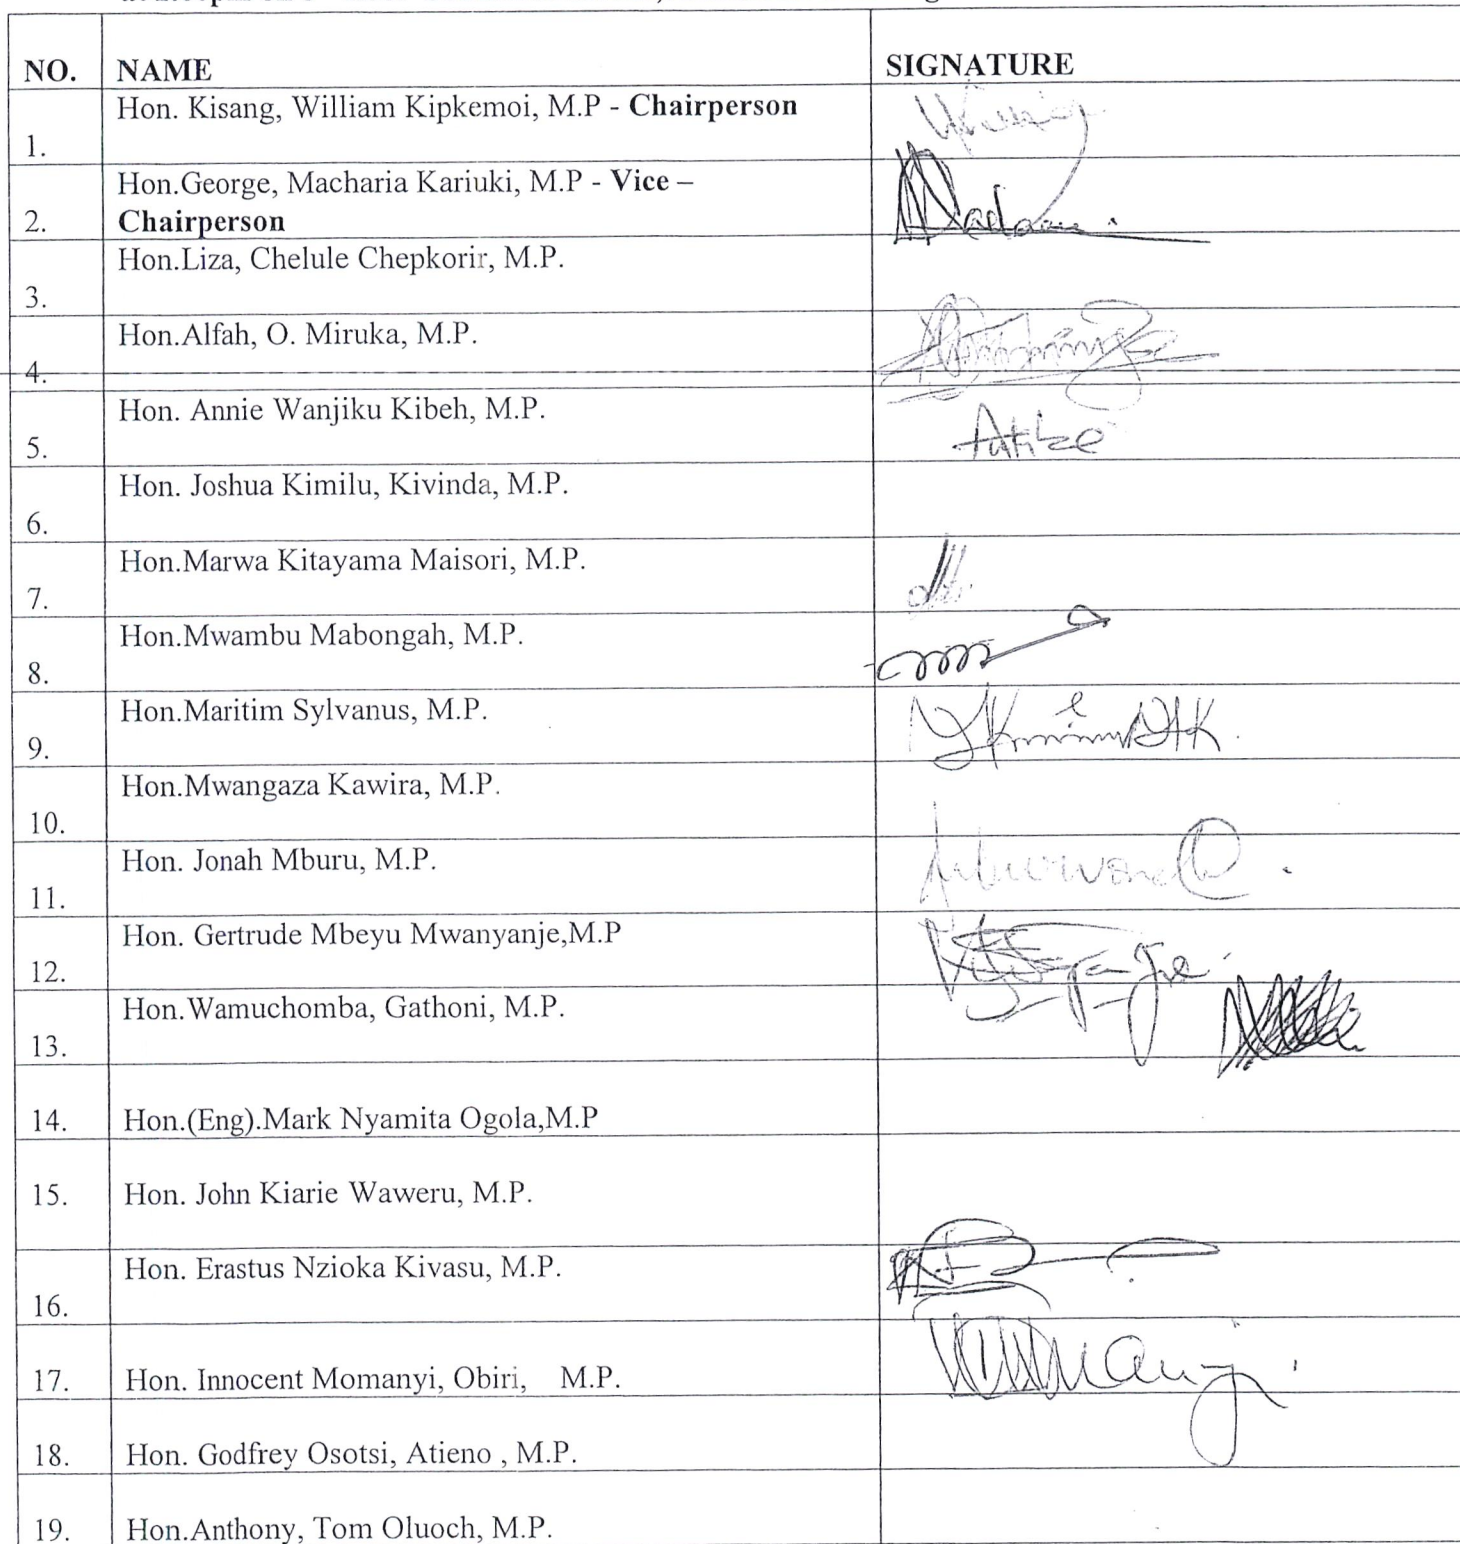 NO. NAME SIGNATURE
1. Hon. Kisang, William Kipkemoi, M.P - Chairperson
2. Hon.George, Macharia Kariuki, M.P - Vice –
Chairperson
3. Hon.Liza, Chelule Chepkorir, M.P.
4. Hon.Alfah, O. Miruka, M.P.
5. Hon. Annie Wanjiku Kibeh, M.P.
6. Hon. Joshua Kimilu, Kivinda, M.P.
7. Hon.Marwa Kitayama Maisori, M.P.
8. Hon.Mwambu Mabongah, M.P.
9. Hon.Maritim Sylvanus, M.P.
10. Hon.Mwangaza Kawira, M.P.
11. Hon. Jonah Mburu, M.P.
12. Hon. Gertrude Mbeyu Mwanyanje,M.P
13. Hon.Wamuchomba, Gathoni, M.P.
14. Hon.(Eng).Mark Nyamita Ogola,M.P
15. Hon. John Kiarie Waweru, M.P.
16. Hon. Erastus Nzioka Kivasu, M.P.
17. Hon. Innocent Momanyi, Obiri, M.P.
18. Hon. Godfrey Osotsi, Atieno , M.P.
19. Hon.Anthony, Tom Oluoch, M.P.